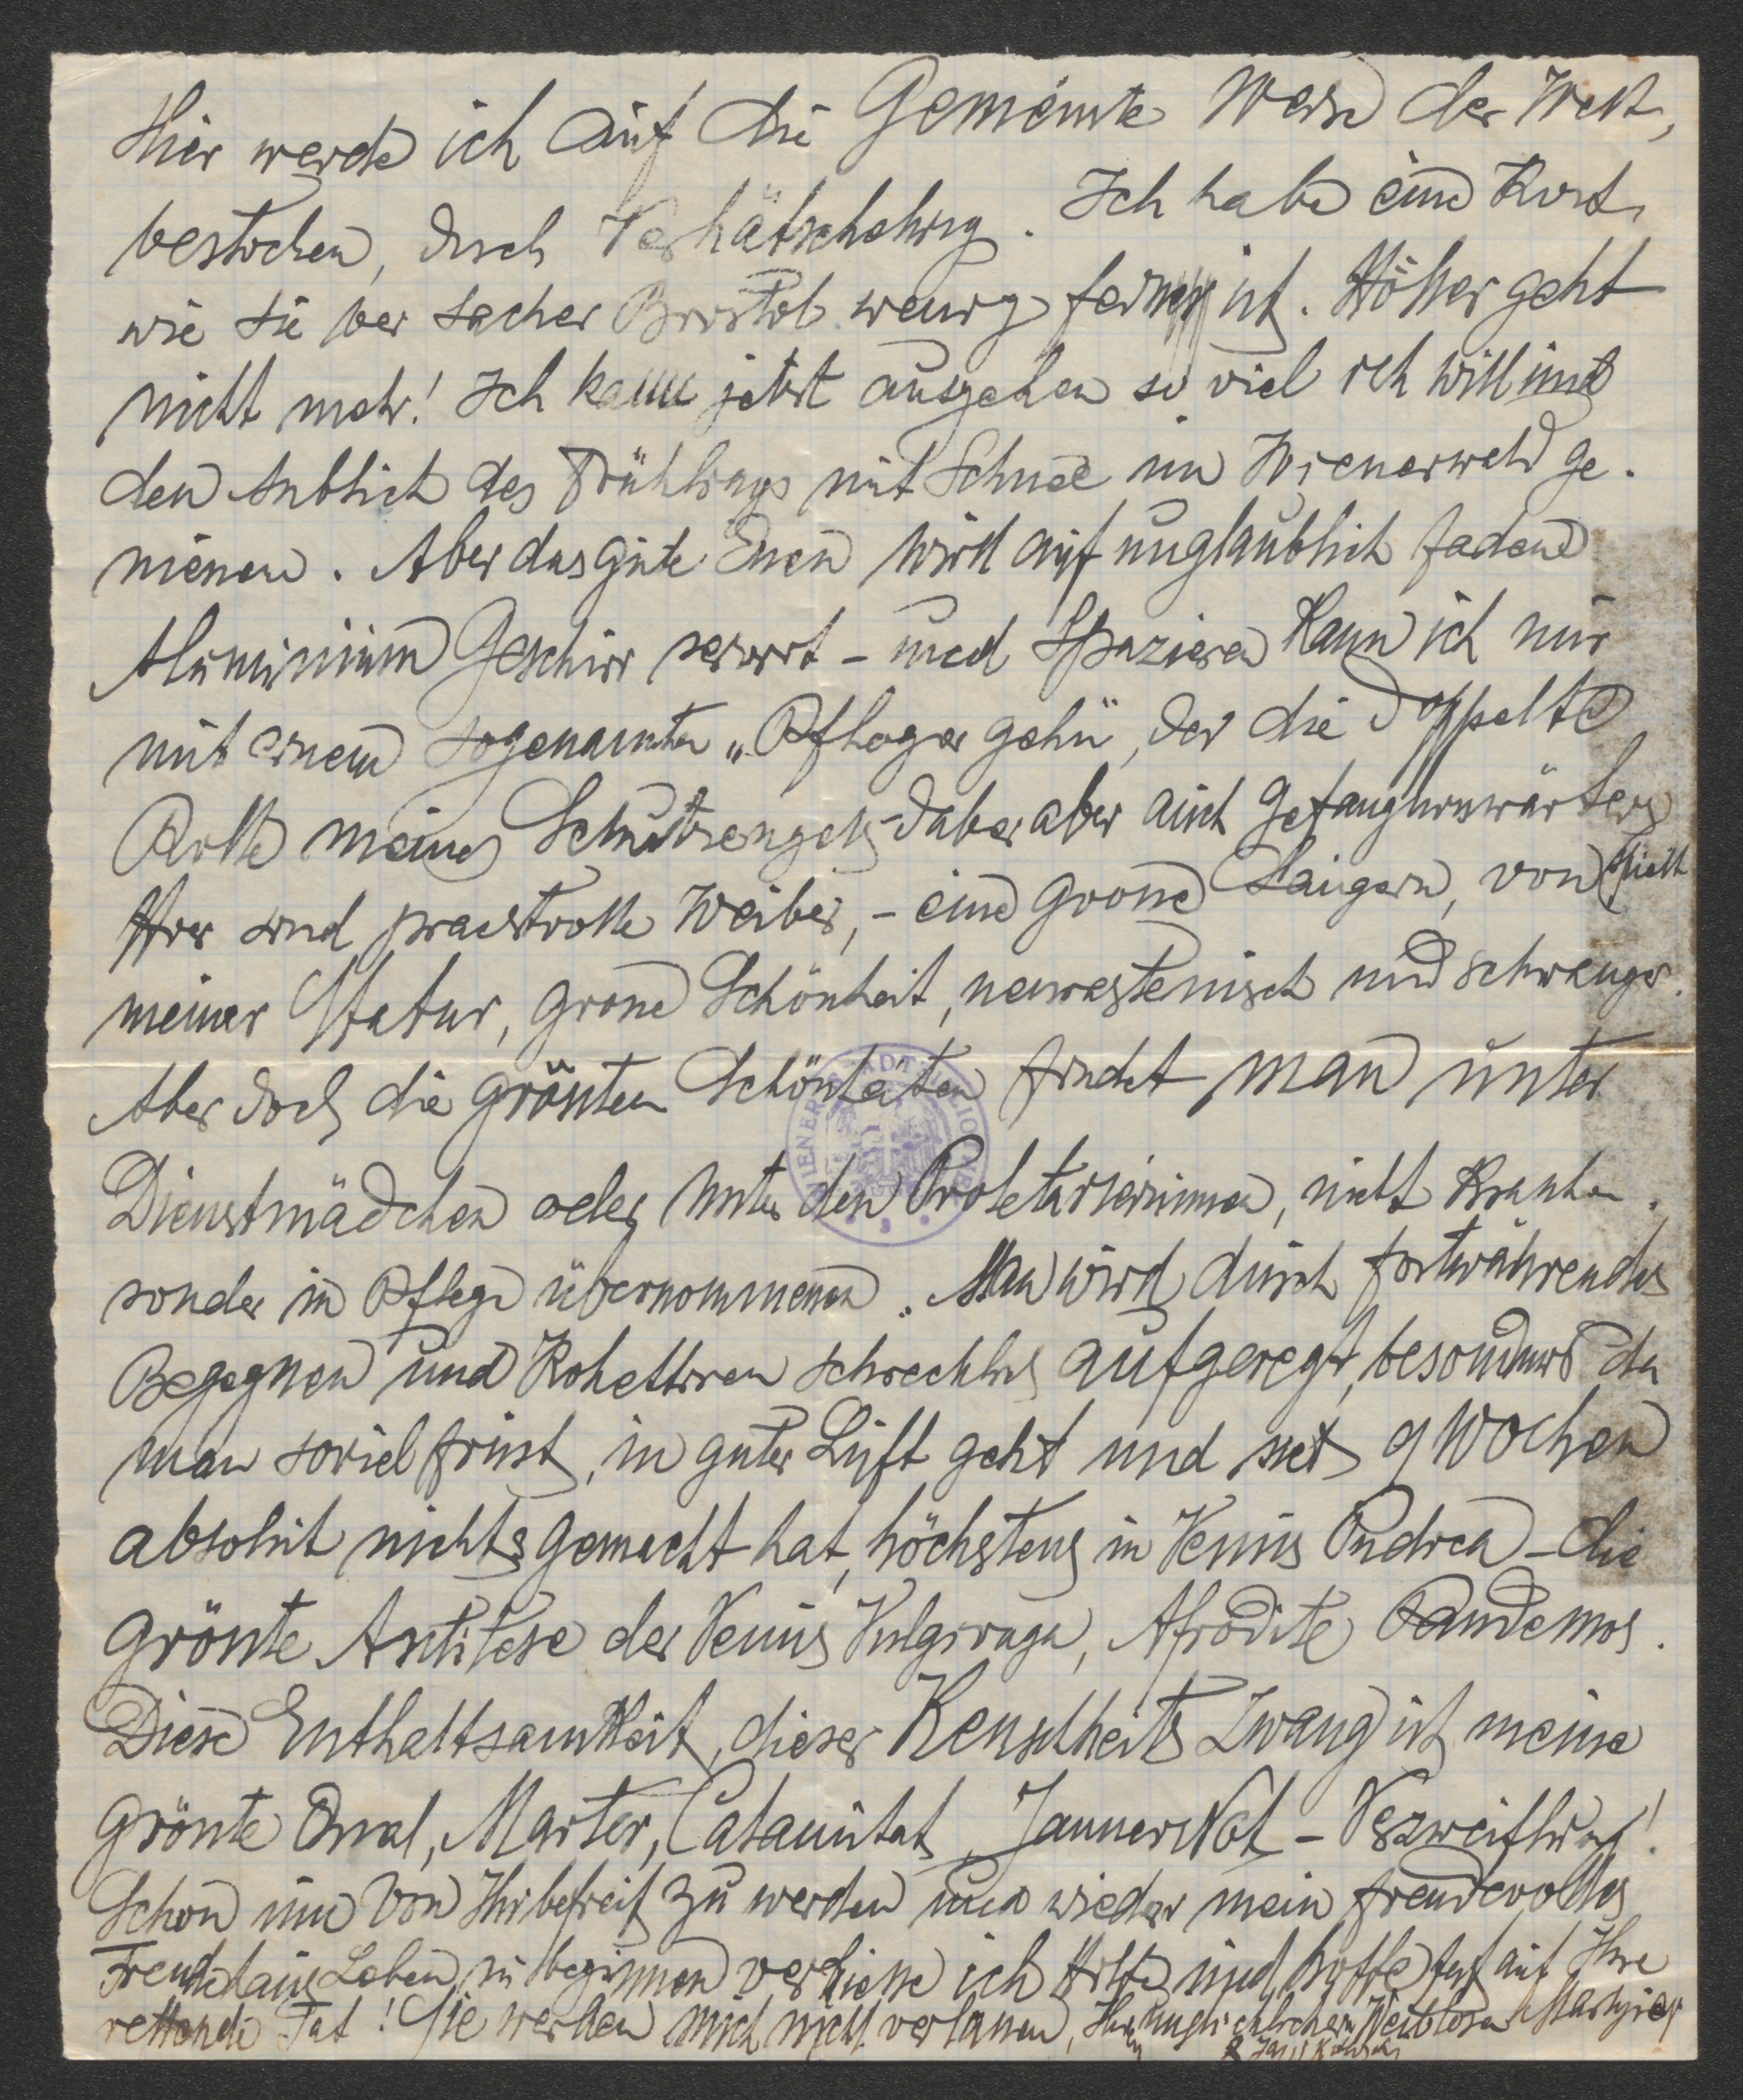 Hier werde ich auf die Gemeinste Weise der Welt,
bestochen, durch Verhätschelung. Ich habe eine Kost,
wie sie bei Sacher Bristol wenig feiner ist. Höher geht
nicht mehr! Ich kann jetzt ausgehen so viel ich will und
den Anblick des Frühlings mit Schnee im Wienerwald ge-
niessen. Aber das gute Essen wird auf unglaublich fadene
Aluminium Geschirr serviert – und Spazieren kann ich nur
mit einem sogenannten „Pfleger gehn", der die doppelte
Rolle meines Schutzengels dabei aber auch Gefangenwärters
spielt
Hier sind prachtvolle Weiber, – eine grosse Sängerin, von
meiner Statur, grosse Schönheit, neurastenisch und schwanger.
Aber doch die grössten Schönheiten findet man unter
Dienstmädchen oder unter den Proletarierinnen, nicht Kranken.
sonder in Pflege übernommenen. Man wird durch fortwährendes
Begegnen und Kokettiren schrecklich aufgeregt, besonders da
man soviel frisst, in guter Luft geht und seit 9 Wochen
absolut nichts gemacht hat, höchstens in Venus Pudica – die
grösste Antitese der Venus Vulgivaga, Afrodite Pandemos.
Diese Enthaltsamkeit, dieser Keuschheits Zwang ist meine
grösste Qual, Marter, Calamität, Jammer Not – Verzweiflung!
Schon um von Ihr befreit zu werden und wieder mein freudevolles
Freudenhaus Leben zu beginnen verdiene ich Hilfe und hoffe fest auf Ihre
rettende Tat! Sie werden mich nicht verlassen, Ihren unglücklichen Weiblosen Martyrer
WIENER STADTBIBLIOTHEK